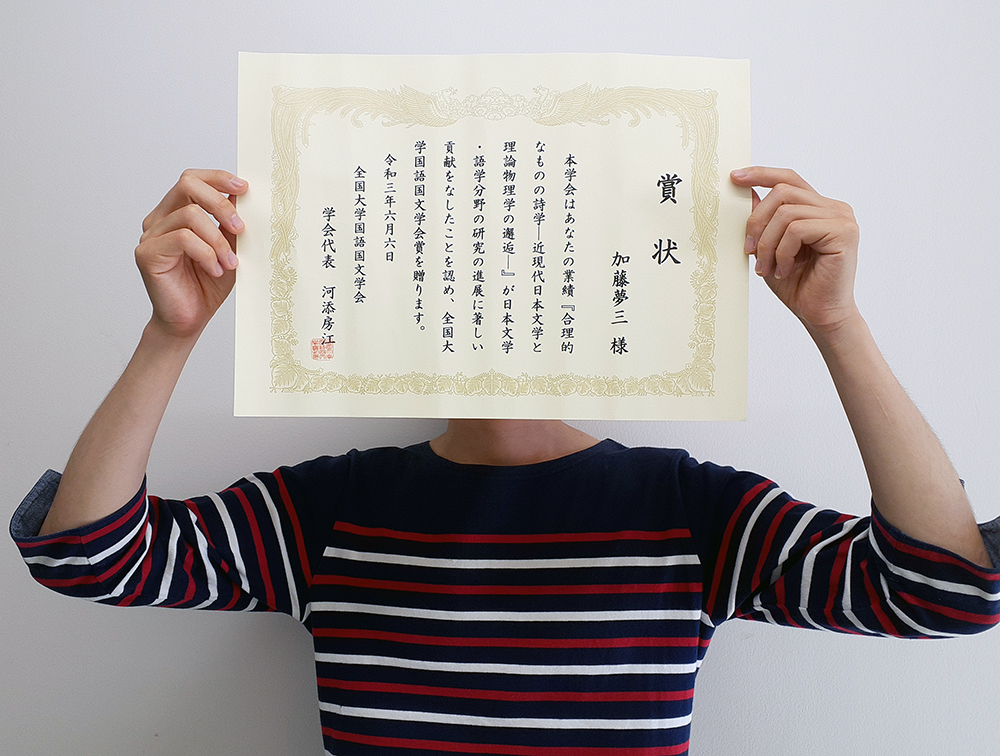 賞状
加藤夢三 様
本学会はあなたの業績『合理的
なものの詩学―近現代日本文学と
理論物理学の邂逅―』が日本文学
・語学分野の研究の進展に著しい
貢献をなしたことを認め、全国大
学国語国文学会賞を贈ります。
令和三年六月六日
全国大学国語国文学会
学会代表 河添房江